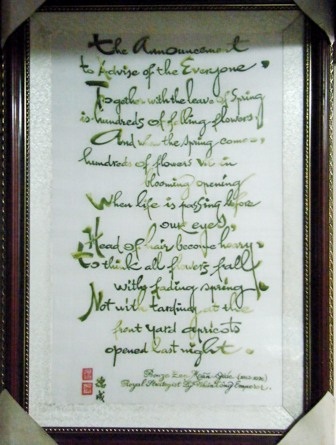 The Announcement
to Advise of the Everyone
Together with the leave of Spring
is hundreds of falling flowers,
And when the spring come
hundreds of flowers in
blooming opening
When life is passing before
our eyes,
Head of hair become hoary
To think all flowers fall
with fading spring
Not with tarding at the
front yard apricots
opened last night.
Royal Strategist